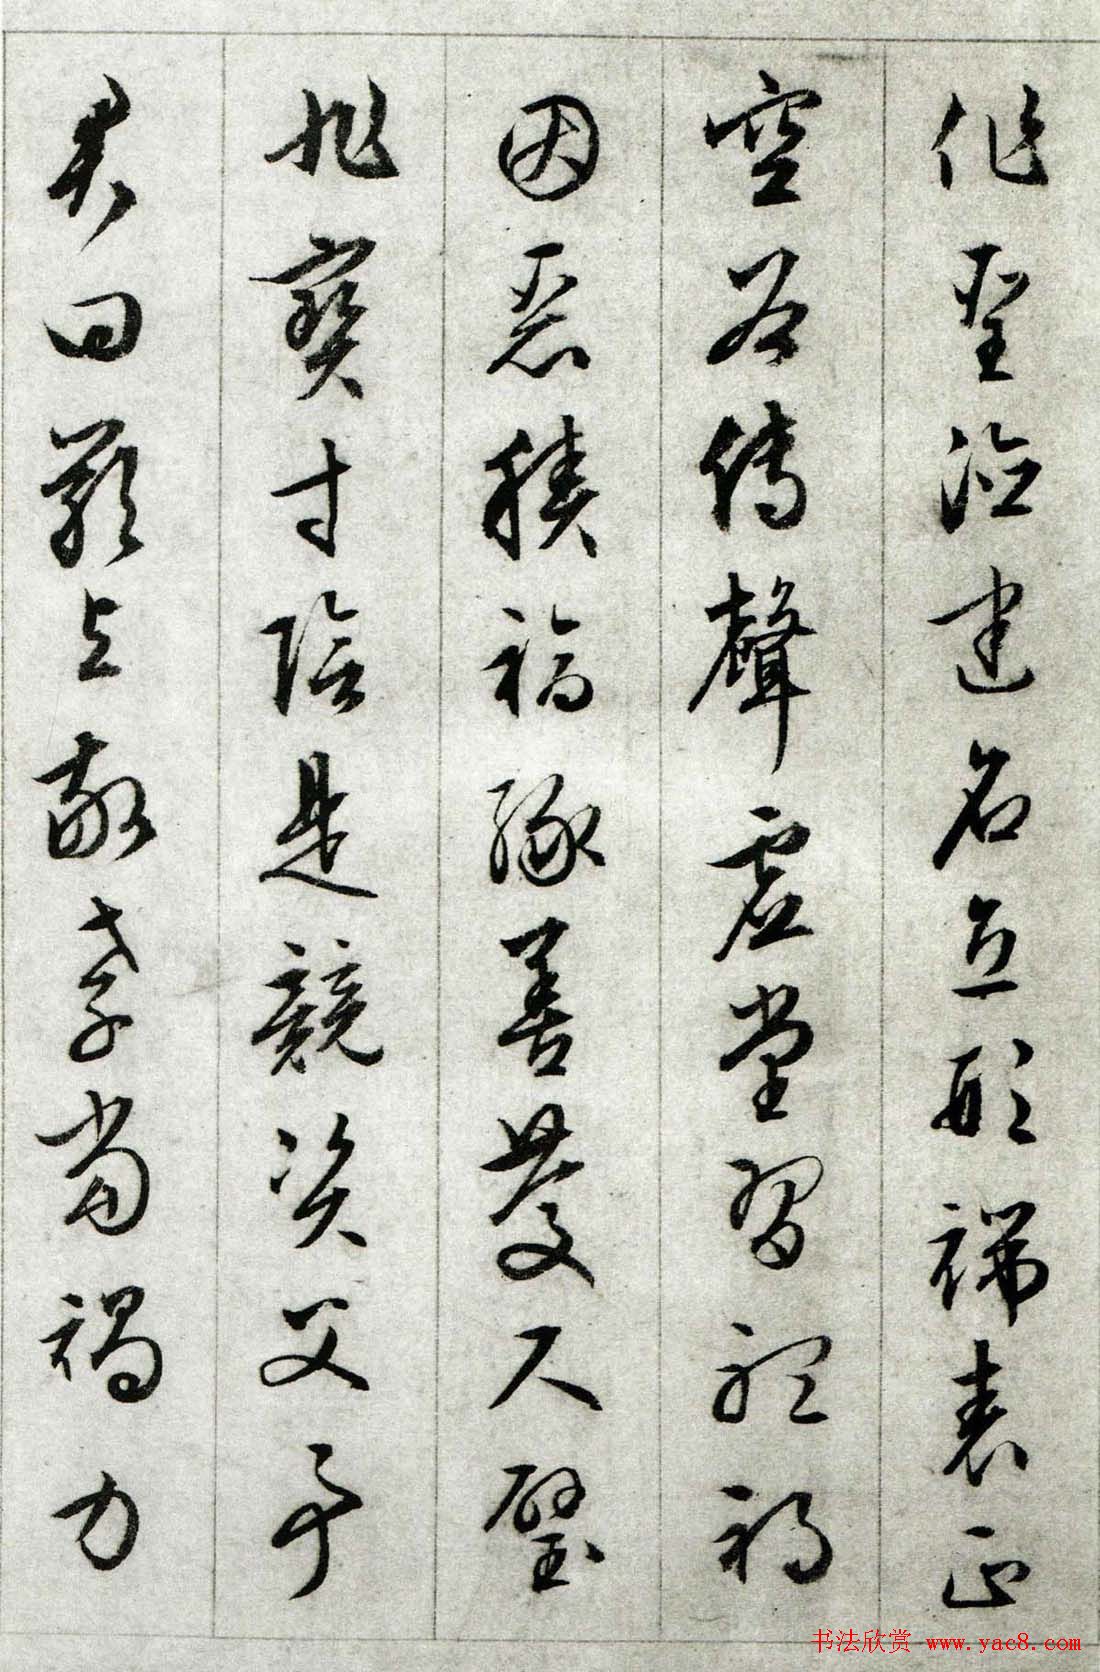 作聖德建名立形端表正
空谷傳聲虛堂習聽禍
因惡積福緣善慶尺璧
非寶寸陰是競資父事
君曰嚴與敬孝當竭力
书法欣赏 www.yac8.com